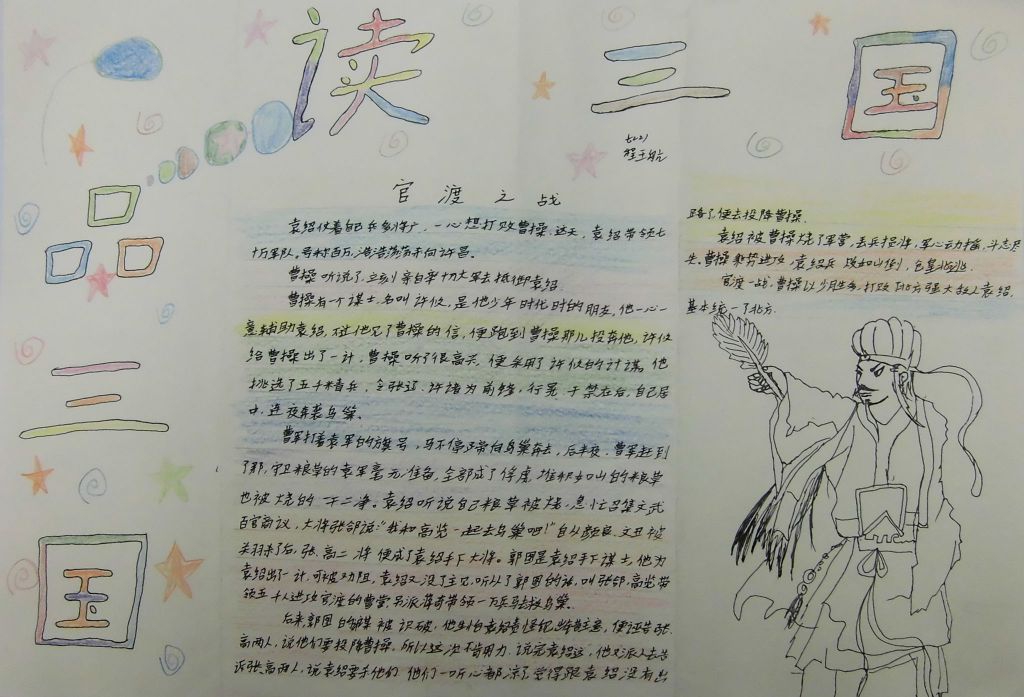 读三国
品三国
七(2)
程于航
官渡之战
袁绍仗着自己兵多将广，一心想打败曹操，这天，袁绍带领七
十万军队，号称百万，浩浩荡荡开向许昌。
曹操听说了，立刻亲自率十万大军去抵御袁绍。
曹操有一个谋士，名叫许攸，是他少年时代时的朋友，他一心一
意辅助袁绍，但他见了曹操的信，便跑到曹操那儿投奔他，许攸
给曹操出了一计，曹操听了很高兴，便采用了许攸的计谋，他
挑选了五千精兵，令张辽、许褚为前锋，行晃、于禁在后，自己居
中，连夜奔袭乌巢。
曹军打着袁军的旗号，马不停蹄向乌巢奔去，后半夜，曹军赶到
了那，守卫粮草的袁军毫无准备，全部成了俘虏，堆积如山的粮草
也被烧的一干二净。袁绍听说自己粮草被烧，急忙召集文武
百官商议，大将张郃说："我和高览一起去乌巢吧！"自从颜良、文丑被
关羽杀了后，张、高二将便成了袁绍手下大将。郭图是袁绍手下谋士，他为
袁绍出了一计，可被劝阻，袁绍又没了主见，听从了郭图的话，叫张郃、高览带
领五千人进攻官渡的曹营，另派蒋奇带领一万兵马去救乌巢。
后来郭图的计谋被识破，他生怕袁绍责怪他出错主意，便诬告张、
高两人，说他们要投降曹操，所以这次不肯用力，说完袁绍这，他又派人去告
诉张、高两人，说袁绍要杀他们，他们一听心都凉了，觉得跟袁绍没有出
路了便去投降曹操。
袁绍被曹操烧了军营，丢兵损将，军心动摇，斗志尽
失，曹操乘势进攻，袁绍兵败如山倒，仓皇北逃。
官渡一战，曹操以少胜多，打败北方强大敌人袁绍，
基本统一了北方